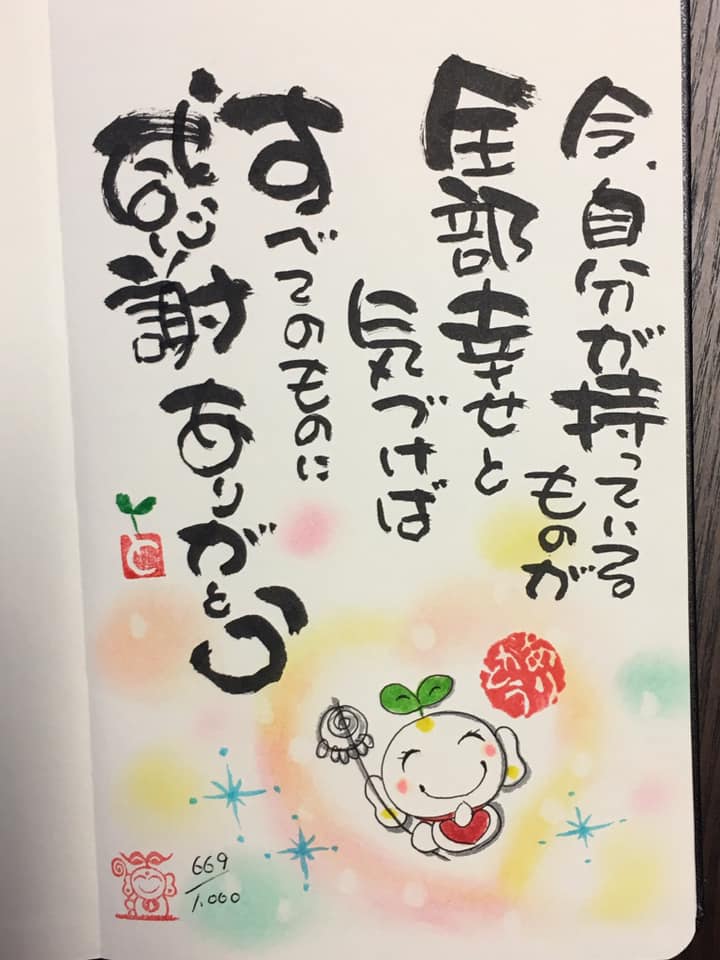 今、自分が持っている
ものが
全部幸せと
気づけば
すべてのものに
感謝
ありがとう
ありがとう
669/1.000